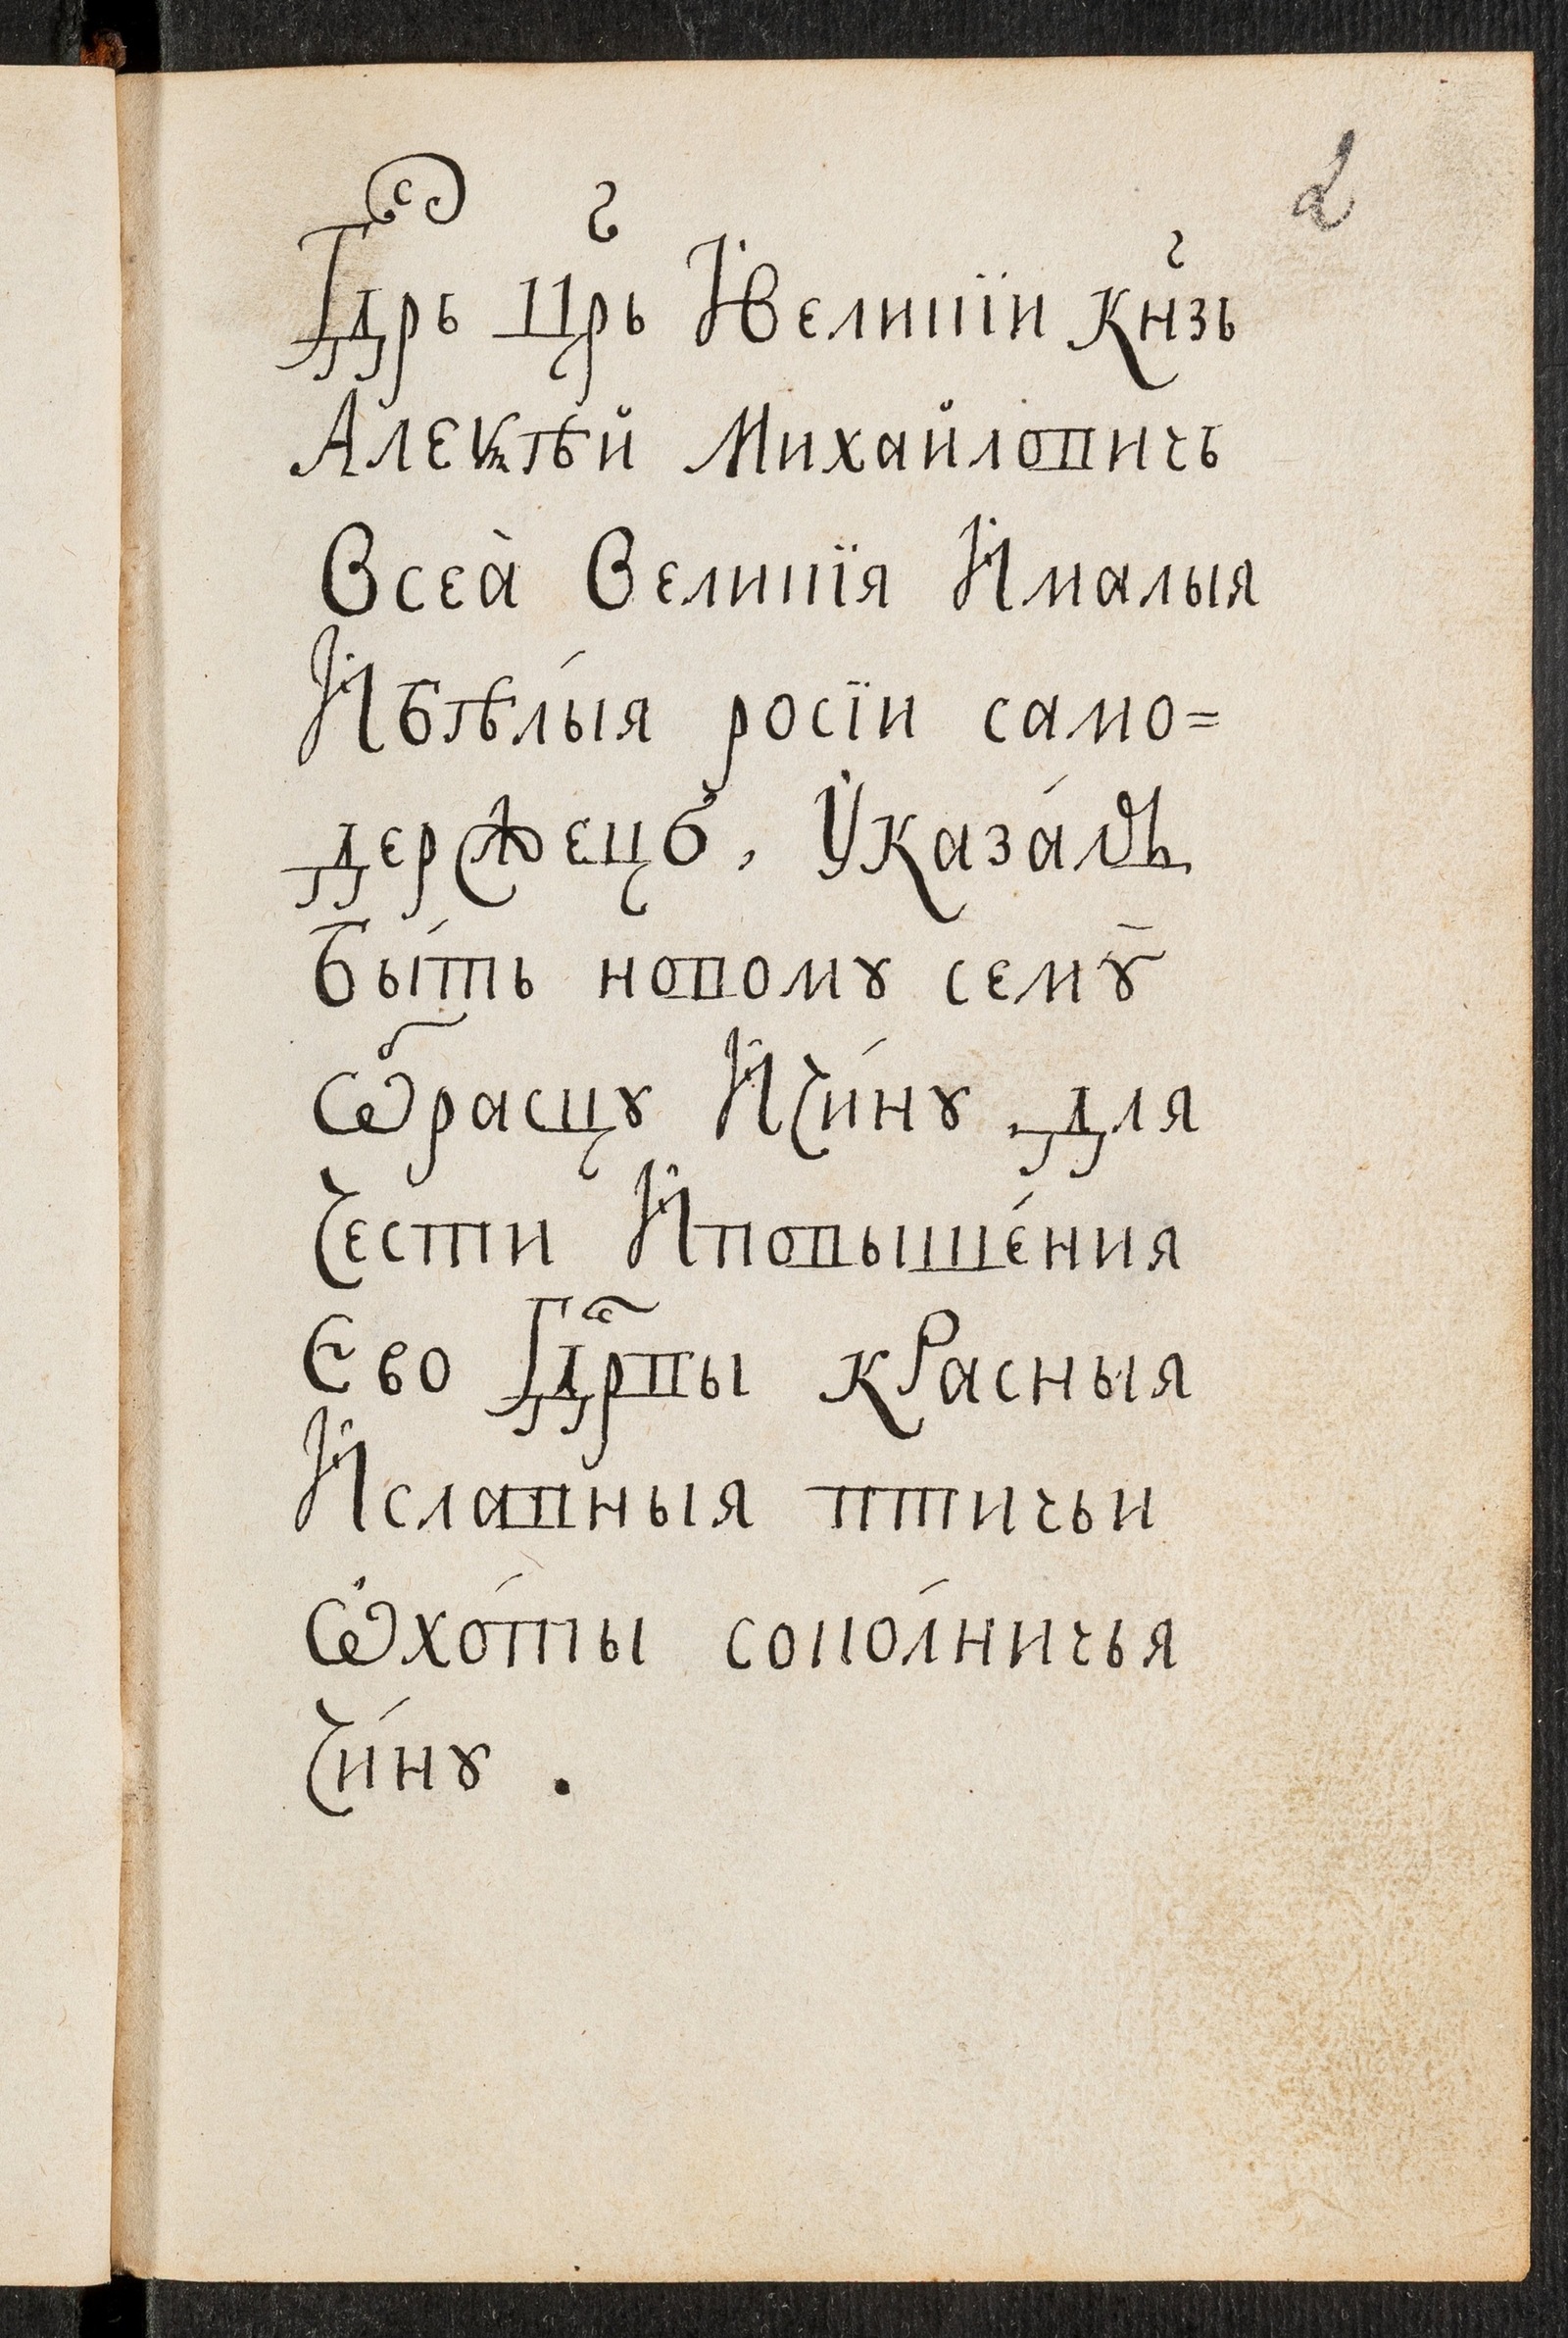 2
Гд҃рь цр҃ь Ївеликїи кн҃зь
Алеѯѣй Михайловичь
Всеа̀ Великїя Ималыя
Ибѣлы́я росїи само=
держецъ, Указа́лъ
бы́ть новому семӯ
ѡбрасцу Ичи́ну для
чести Иповыше́ния
Ево Гд҃рвы красныя
Иславныя птичьи
Ѡхо́ты соко́лничья
чи́ну .